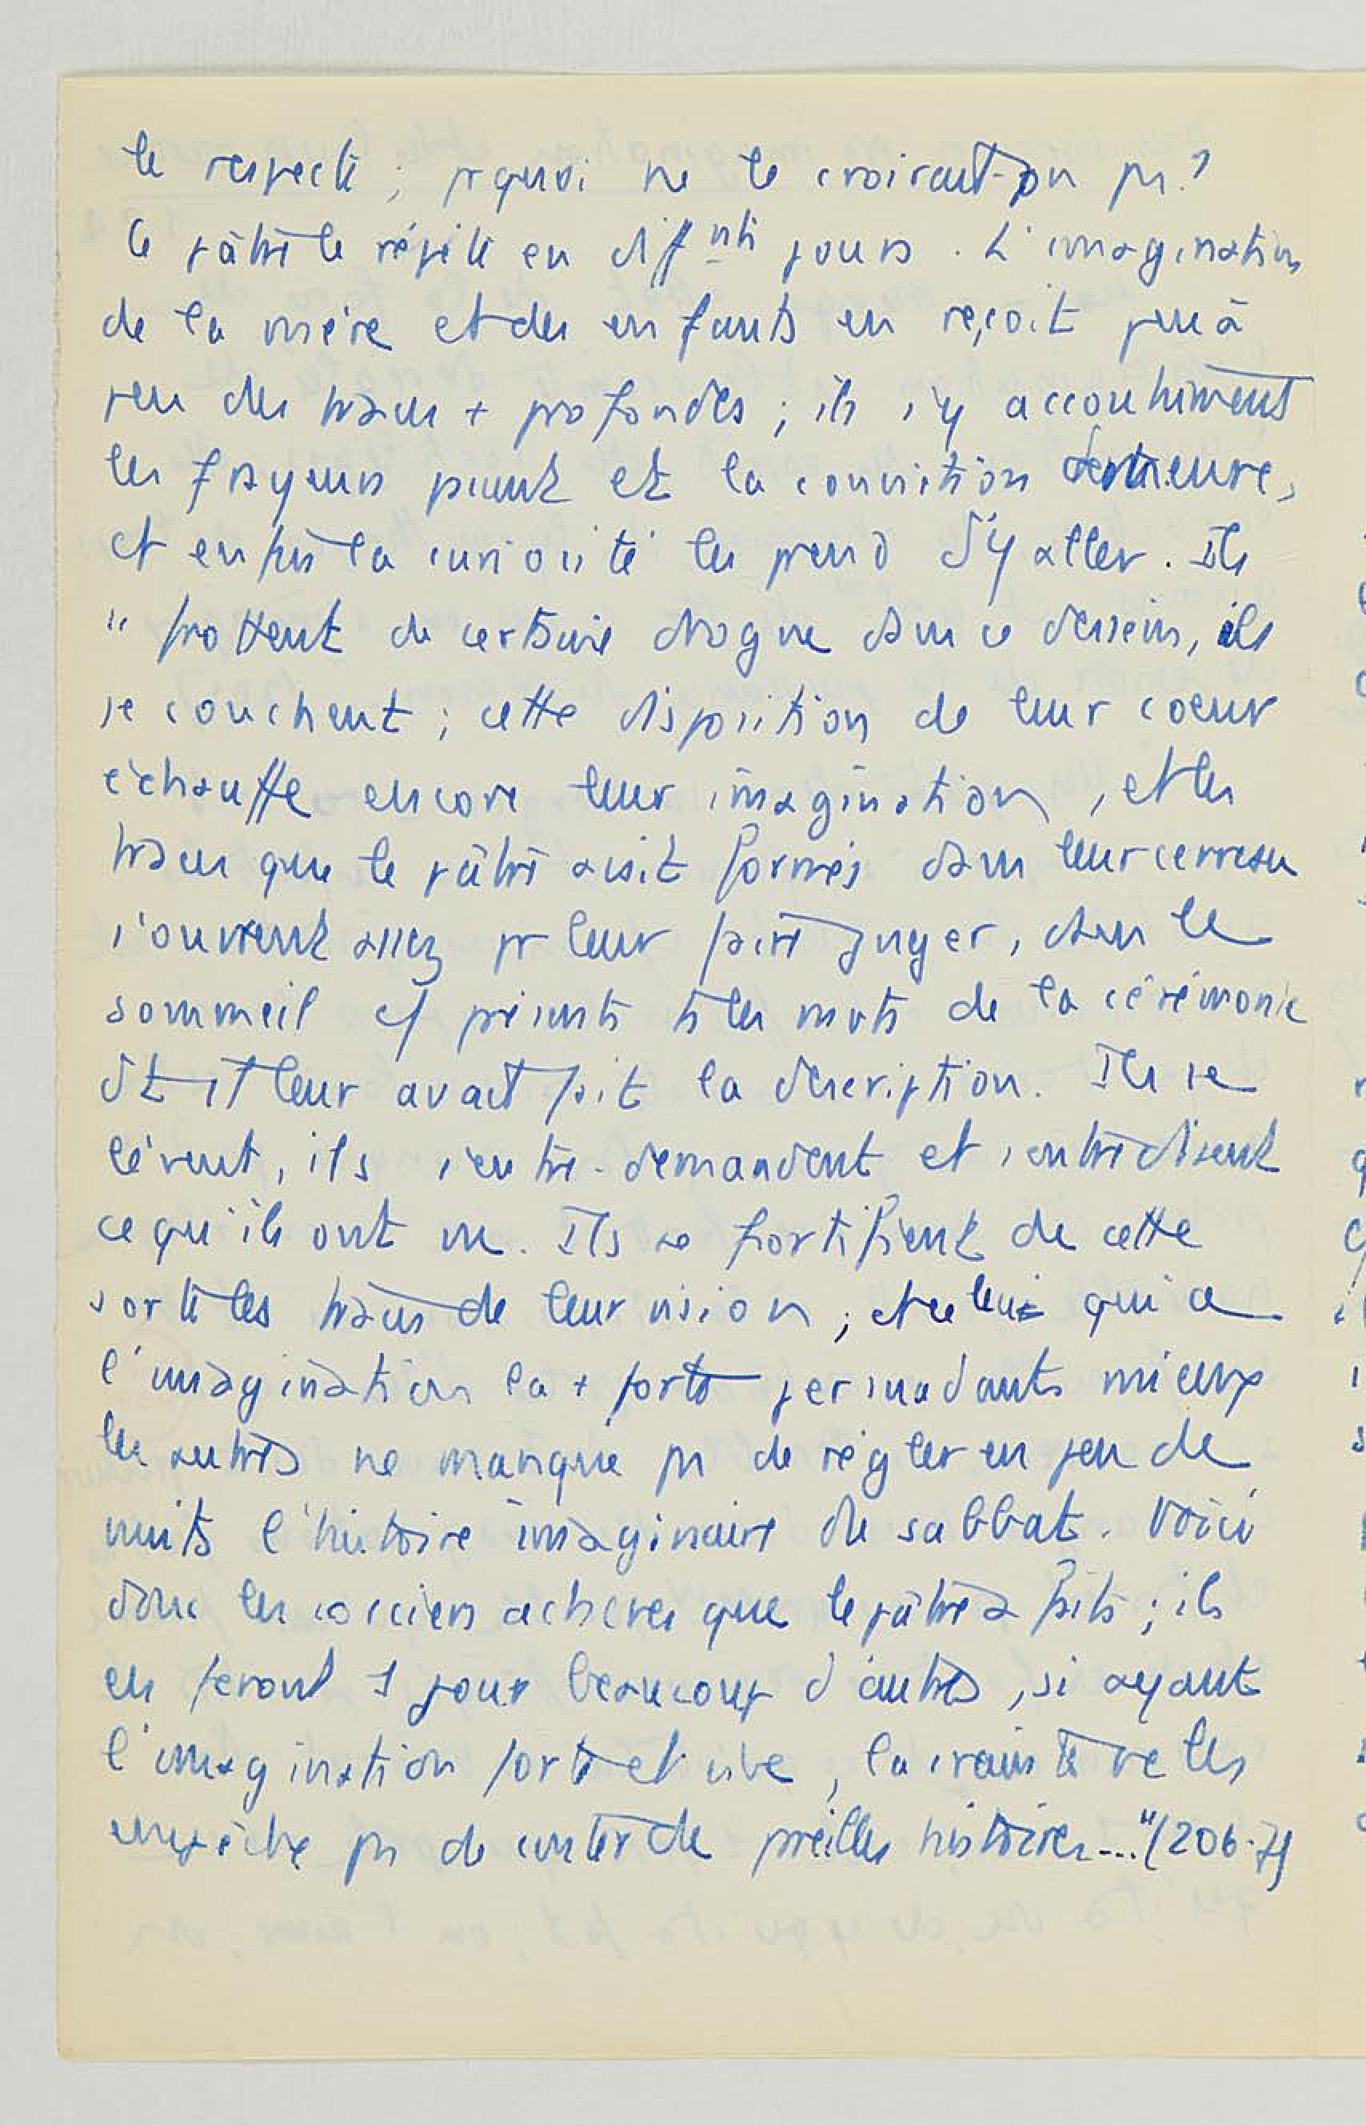 le respecte ; pquoi ne le croirait-on pas ?
Le pâtre le répète en diffnts jours. L'imagination
de la mère et des enfants en reçoit peu à
peu des traces + profondes ; ils s'y accoutument
les frayeurs passent et la conviction demeure,
et enfin la curiosité les prend d'y aller. Ils
se frottent de certaine drogue dans ce dessein, ils
se couchent ; cette disposition de leur coeur
échauffe encore leur imagination, et les
traces que le pâtre avait formées dans leur cerveau
s'ouvrent assez pr leur faire juger, dans le
sommeil c/ présents ts les mvts de la cérémonie
dt il leur avait fait la description. Ils se
lèvent, ils s'entre-demandent et s'entredisent
ce qu'ils ont vu. Ils se fortifient de cette
sorte les traces de leur vision ; et celui qui a
l'imagination la + forte persuadant mieux
les autres ne manque pas de régler en peu de
nuits l'histoire imaginaire du sabbat. Voici
donc les sorciers achevés que le pâtre a faits ; ils
en feront 1 jour beaucoup d'autres, si ayant
l'imagination forte et vive, la crainte ne les
empêche pas de conter de pareilles histoires..." (206-7)